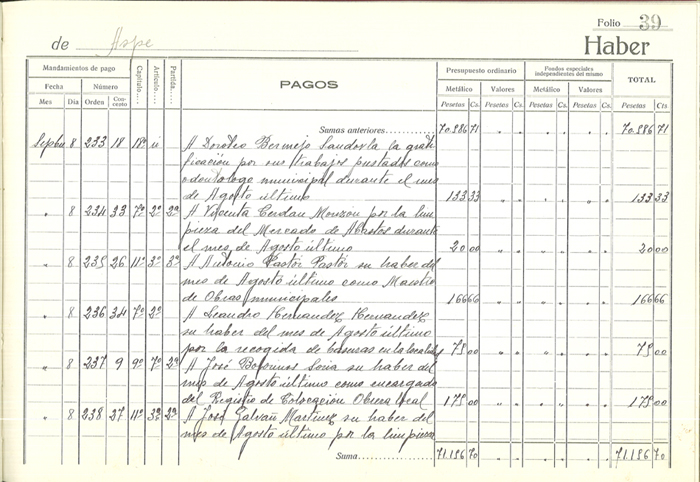 Folio 39
de Aspe Haber
Mandamientos de pago Capítulo Artículo Partida PAGOS Presupuesto ordinario Fondos especiales independientes del mismo TOTAL
Fecha Número Metálico Valores Metálico Valores
Mes Día Orden Concepto Pesetas Cs. Pesetas Cs. Pesetas Cs. Pesetas Cs. Pesetas Cts
Sumas anteriores 70.986 71 " " " 70.986 71
Sepbre 8 233 18 18º A Doroteo Bermejo la grati
ficación por sus trabajos prestados como
odontólogo municipal durante el mes
de Agosto último 133 33 " " " 133 33
" 8 234 33 7º 2º 2ª A Vicenta Cerdan Monzón por la lim
pieza del Mercado de Abastos durante
el mes de Agosto último 20 00 " " " 20 00
" 8 235 26 11º 3º 3ª A Antonio Pastor Pastor su haber del
mes de Agosto último como Maestro
de Obras municipales 166 66 " " " 166 66
" 8 236 34 7º 2º A Leandro Hernandez Hernandez
su haber del mes de Agosto último
por la recogida de basuras en la localidad 75 00 " " " 75 00
" 8 237 9 9º 7º 2ª A José Soria su haber del
mes de Agosto último como encargado
del Registro de Colocación Obrera local 175 00 " " " 175 00
" 8 238 27 11º 3º 2ª A José Galvañ Martinez su haber del
mes de Agosto último por la limpieza
Suma 71.186 70 " " " 71.186 70